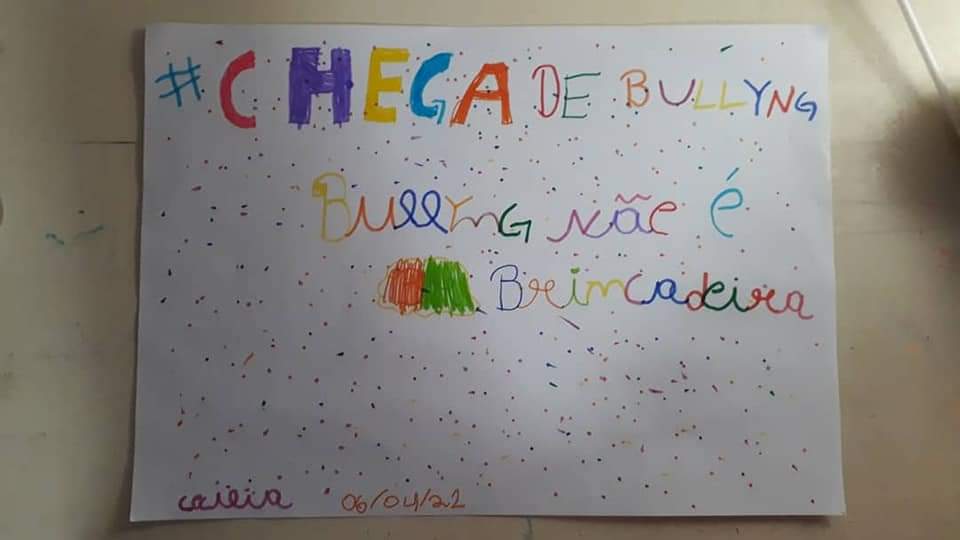 #CHEGA DE BULLYNG
Bullyng não é
Brincadeira
06/04/21